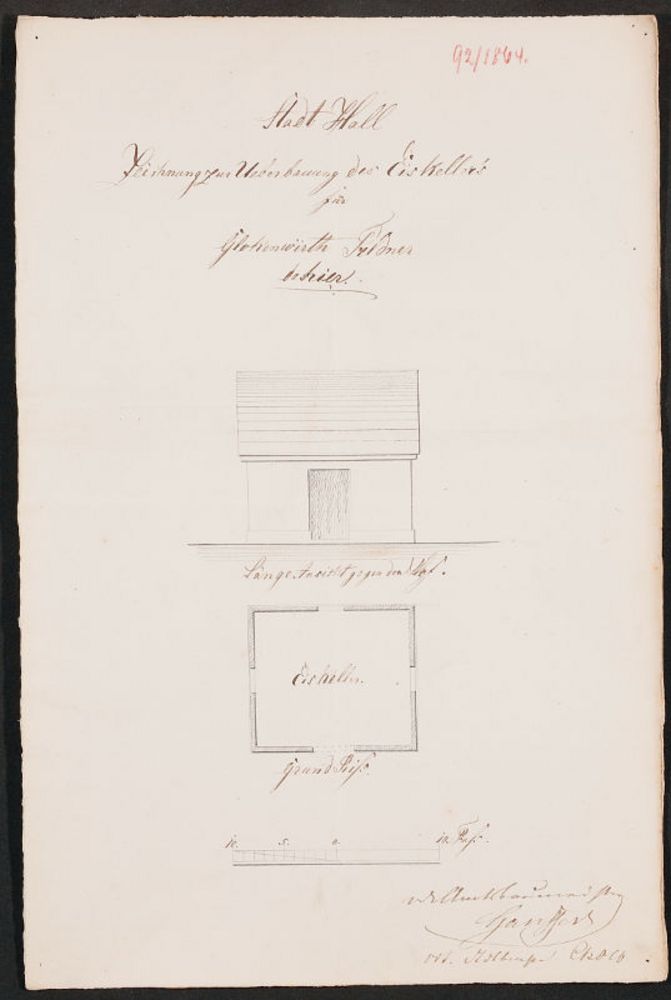 92/1864.
Stadt Hall
Zeichnung zur Ueberbauung des Eiskellers
für
Glokenwirth Feldner
dahier.
Länge Ansicht gegen den Hof.
Eiskeller.
Grund Riß.
10. 5. 0. 10. Fuß.
Amtsbaumeister